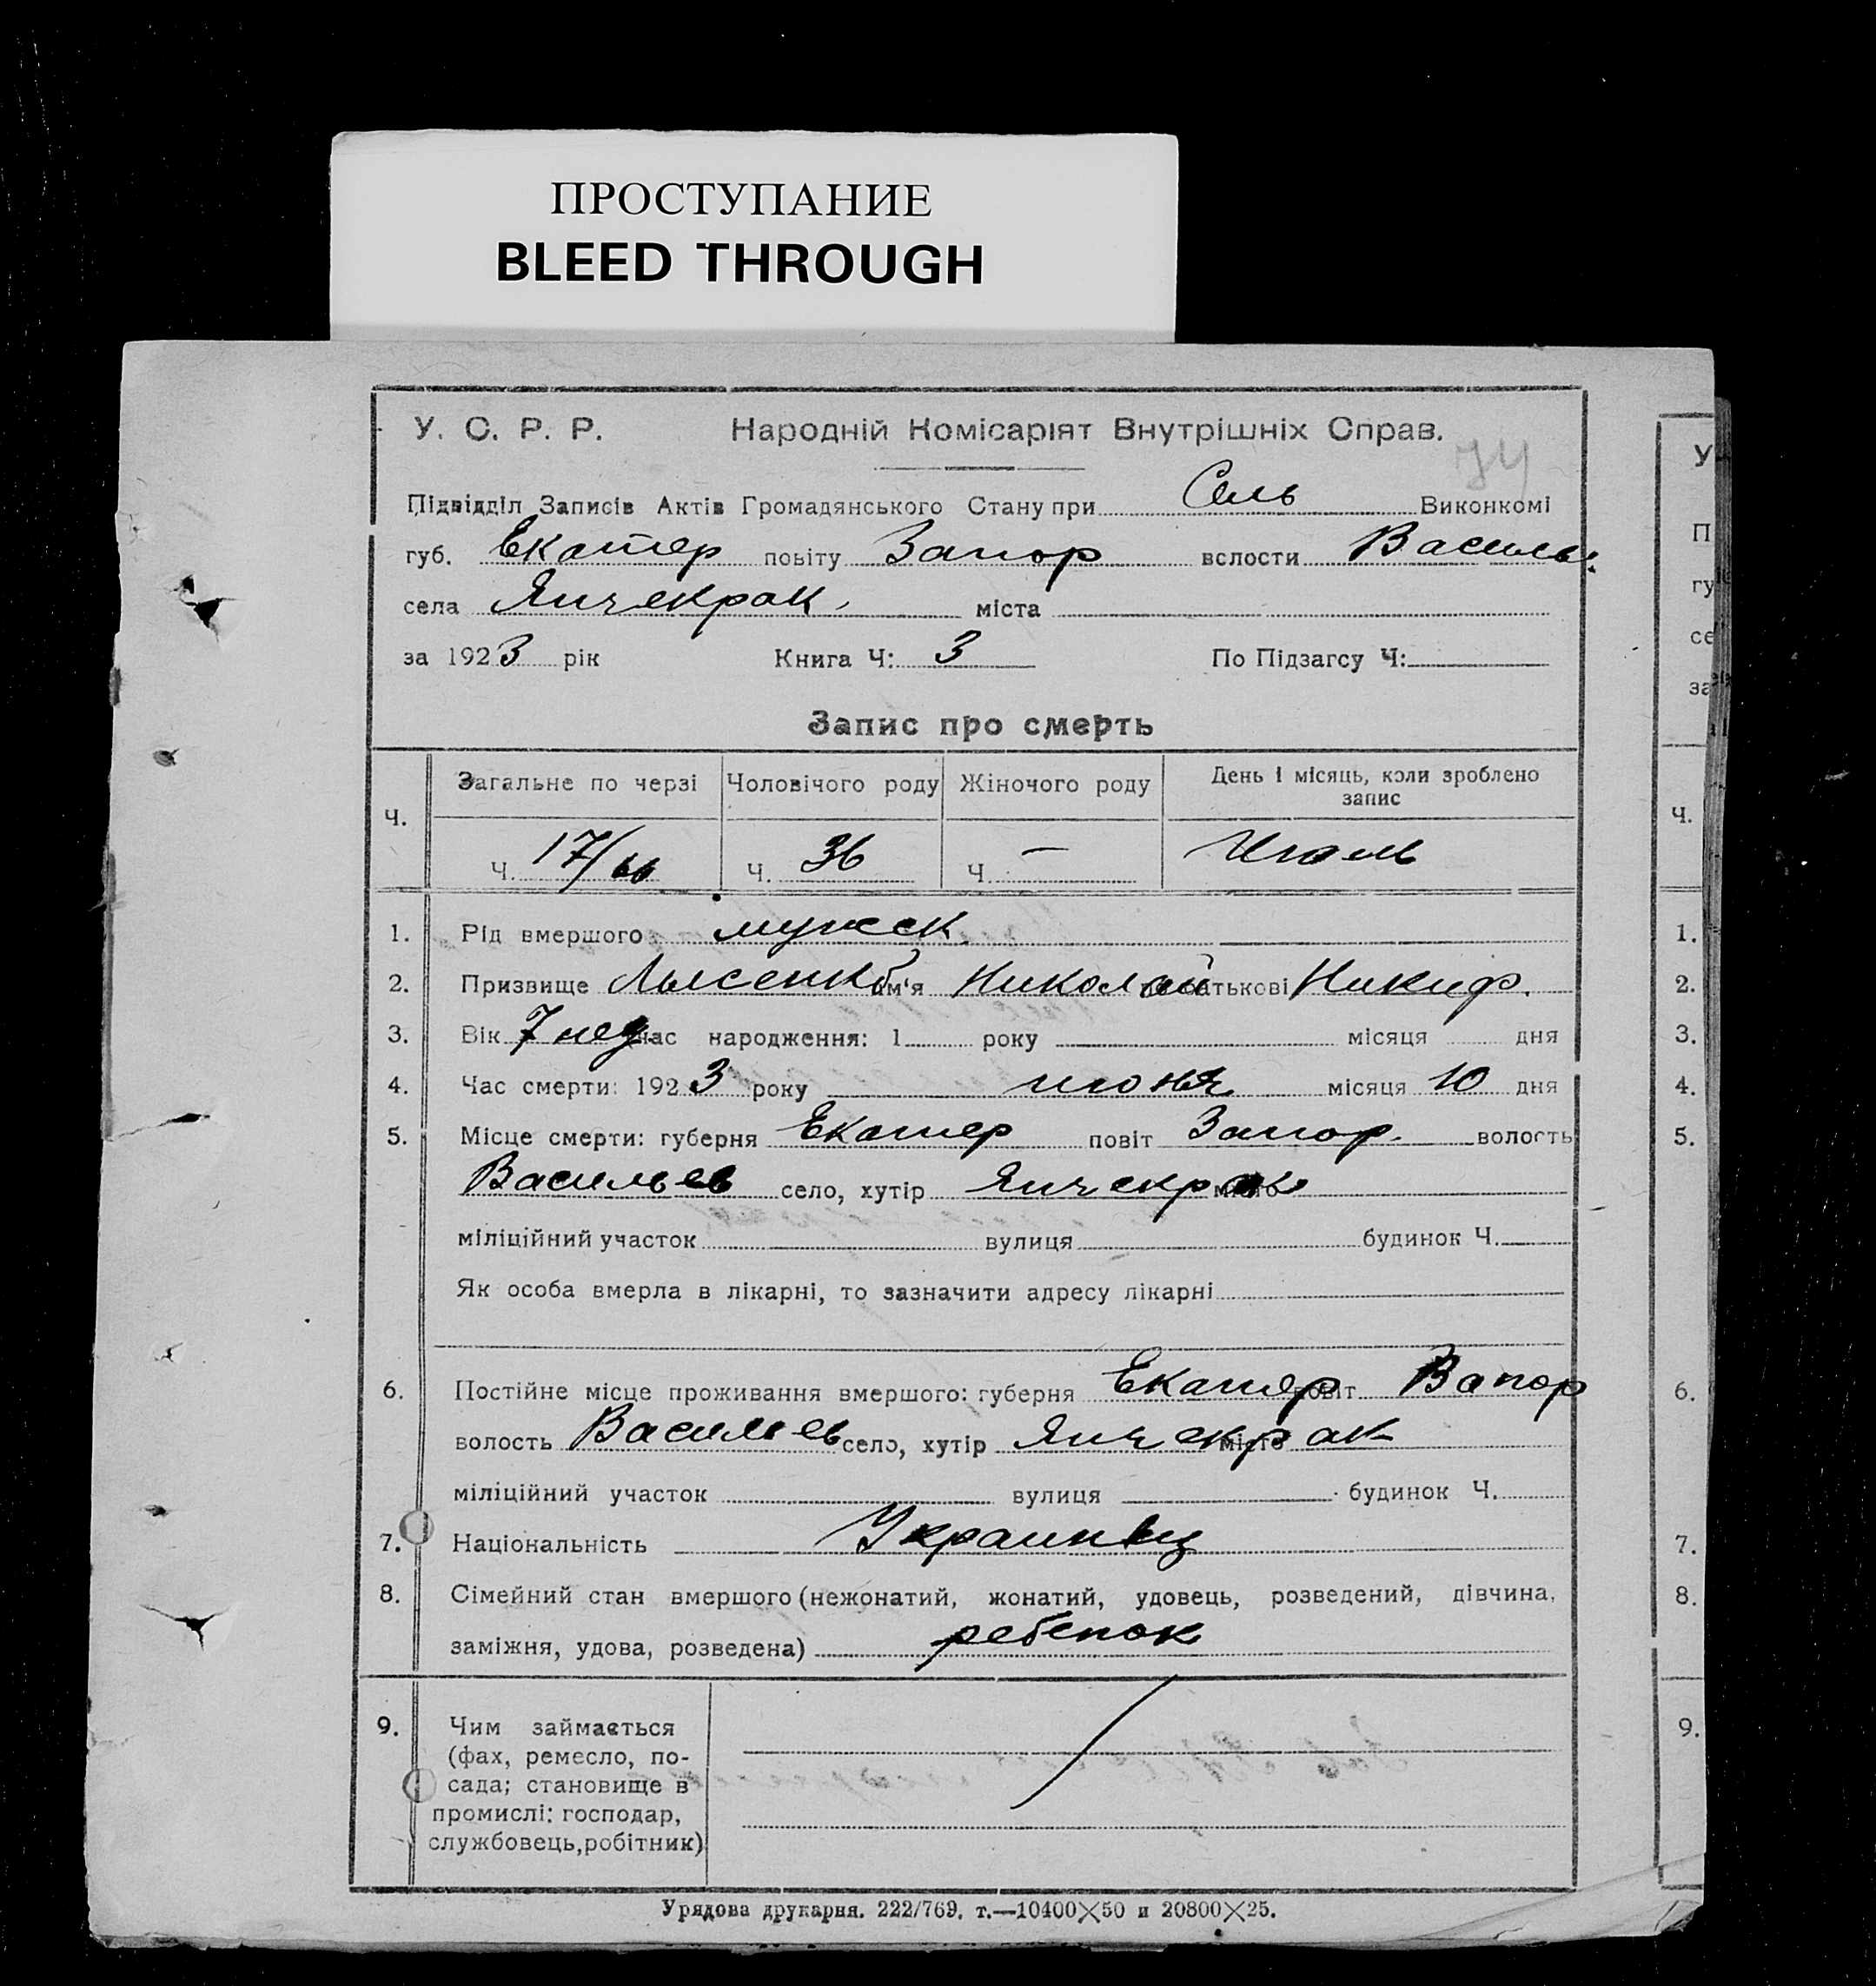 ПРОСТУПАНИЕ
BLEED THROUGH
У. С. Р. Р. Народній Комісаріят Внутрішніх Справ.
74
Підвідділ Записів Актів Громадянського Стану при Сель Виконкомі
губ. Екатер повіту Запор волости Васильев
села Янчекрак міста
за 1923 рік Книга Ч: 3 По Підзагсу Ч:
Запис про смерть
Ч. Загальне по черзі Чоловічого роду Жіночого роду День і місяць, коли зроблено запис
Ч. 17/66 Ч. 36 Ч. —
1. Рід вмершого мужск
2. Призвище Лысенко Ім'я Николай по батькові Никиф.
3. Вік 7 нед час народження: 1 року місяця дня
4. Час смерти: 1923 року июня місяця 10 дня
5. Місце смерти: губерня Екатер повіт Запор. волость
Васильев село, хутір Янчекрак місто
міліційний участок вулиця будинок Ч.
Як особа вмерла в лікарні, то зазначити адресу лікарні
6. Постійне місце проживання вмершого: губерня Екатер повіт Запор
волость Васильев село, хутір Янчекрак місто
міліційний участок вулиця будинок Ч.
7. Національність Украинец
8. Сімейний стан вмершого (нежонатий, жонатий, удовець, розведений, дівчина,
заміжня, удова, розведена) ребенок
9. Чим займається
(фах, ремесло, по-
сада; становище в
промислі: господар,
службовець, робітник)
Урядова друкарня. 222/769. т.—10400×50 и 20800×25.
У
П
гу
се
за
Ч.
1.
2.
3.
4.
5.
6.
7.
8.
9.